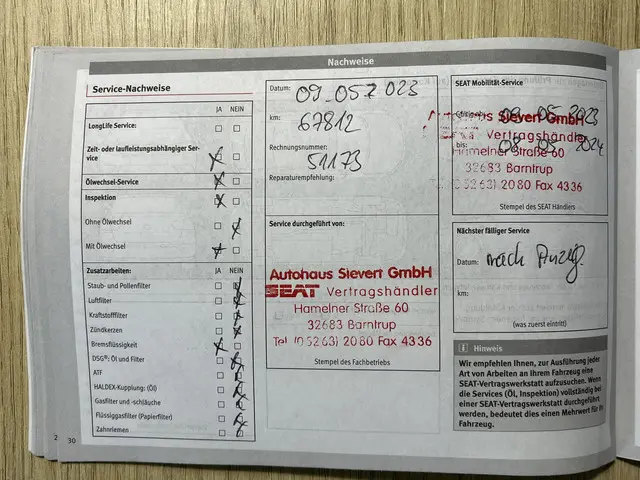 Nachweise
Service-Nachweise
JA NEIN
LongLife Service:
Zeit- oder laufleistungsabhängiger Ser-
vice
Ölwechsel-Service
Inspektion
Ohne Ölwechsel
Mit Ölwechsel
Zusatzarbeiten: JA NEIN
Staub- und Pollenfilter
Luftfilter
Kraftstofffilter
Zündkerzen
Bremsflüssigkeit
DSG®: Öl und Filter
ATF
HALDEX-Kupplung: (Öl)
Gasfilter und -schläuche
Flüssiggasfilter (Papierfilter)
Zahnriemen
2 30
Datum: 09.05.2023
km: 67812
Rechnungsnummer: 51173
Reparaturempfehlung:
Service durchgeführt von:
Autohaus Sievert GmbH
SEAT Vertragshändler
Hamelner Straße 60
32683 Barntrup
Tel. (05263) 2080 Fax 4336
Stempel des Fachbetriebs
SEAT Mobilität-Service
09.05.2023
bis: 08.05.2024
Autohaus Sievert GmbH
SEAT Vertragshändler
Hamelner Straße 60
32683 Barntrup
Tel. (05263) 2080 Fax 4336
Stempel des SEAT Händlers
Nächster fälliger Service
Datum: nach Anzeig.
km:
(was zuerst eintritt)
i Hinweis
Wir empfehlen Ihnen, zur Ausführung jeder
Art von Arbeiten an Ihrem Fahrzeug eine
SEAT-Vertragswerkstatt aufzusuchen. Wenn
die Services (Öl, Inspektion) vollständig bei
einer SEAT-Vertragswerkstatt durchgeführt
werden, bedeutet dies einen Mehrwert für Ihr
Fahrzeug.